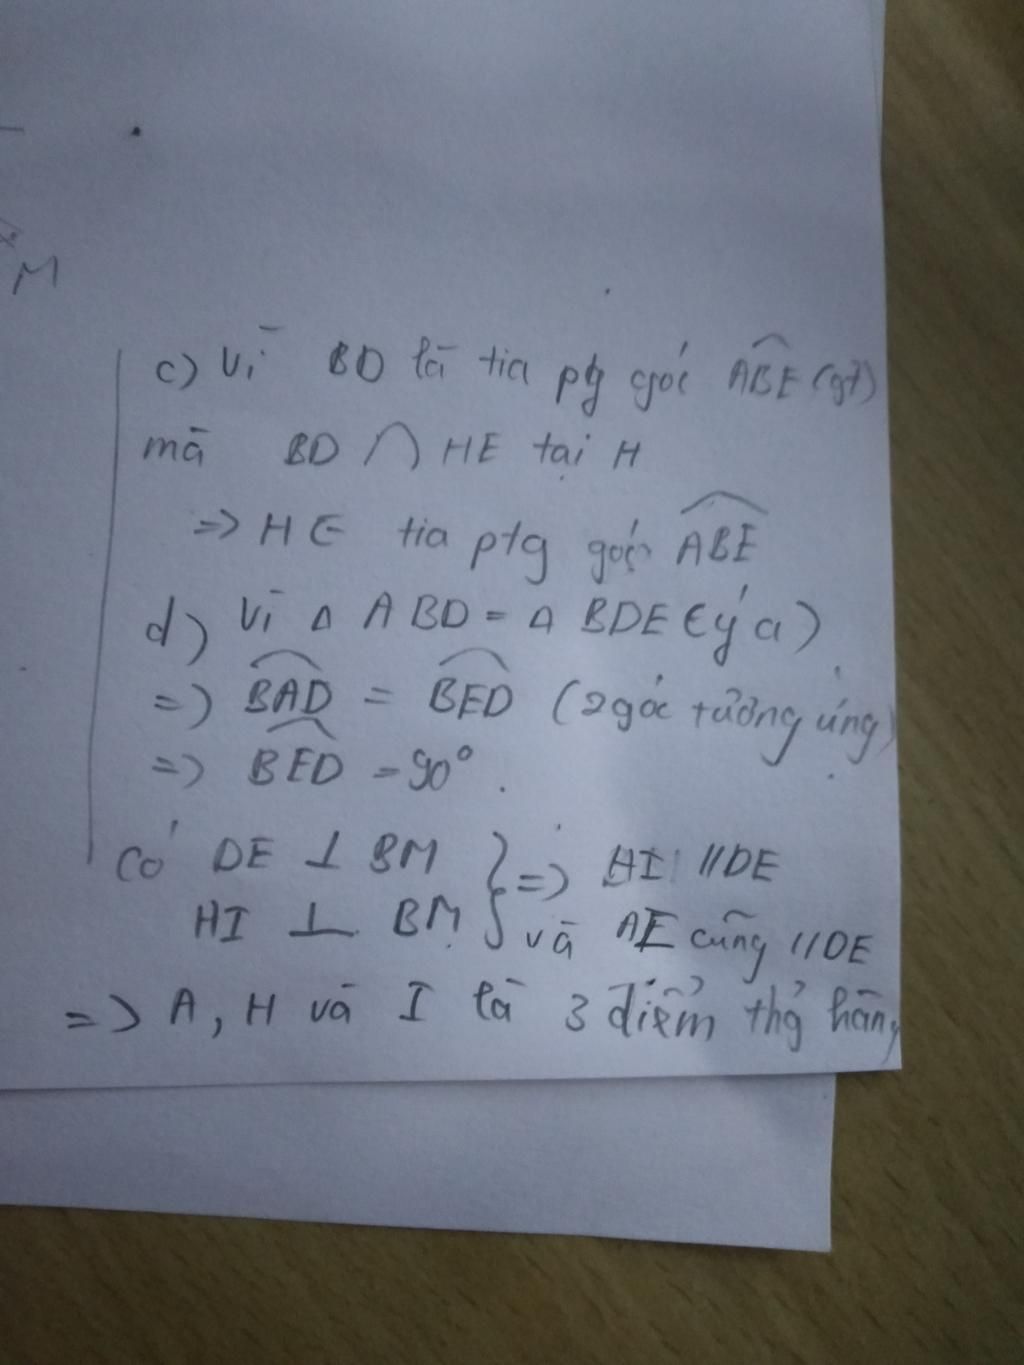 M
c) Vì BD là tia ptg góc ABE (gt)
mà BD ∩ HE tại H
=> H ∈ tia ptg góc ABE
d) Vì Δ ABD = Δ BDE (ý a)
=> BAD = BED (2 góc tương ứng)
=> BED = 90°.
Có DE ⊥ BM } => HI // DE
HI ⊥ BM } và AE cũng // DE
=> A, H và I là 3 điểm thẳ hàng